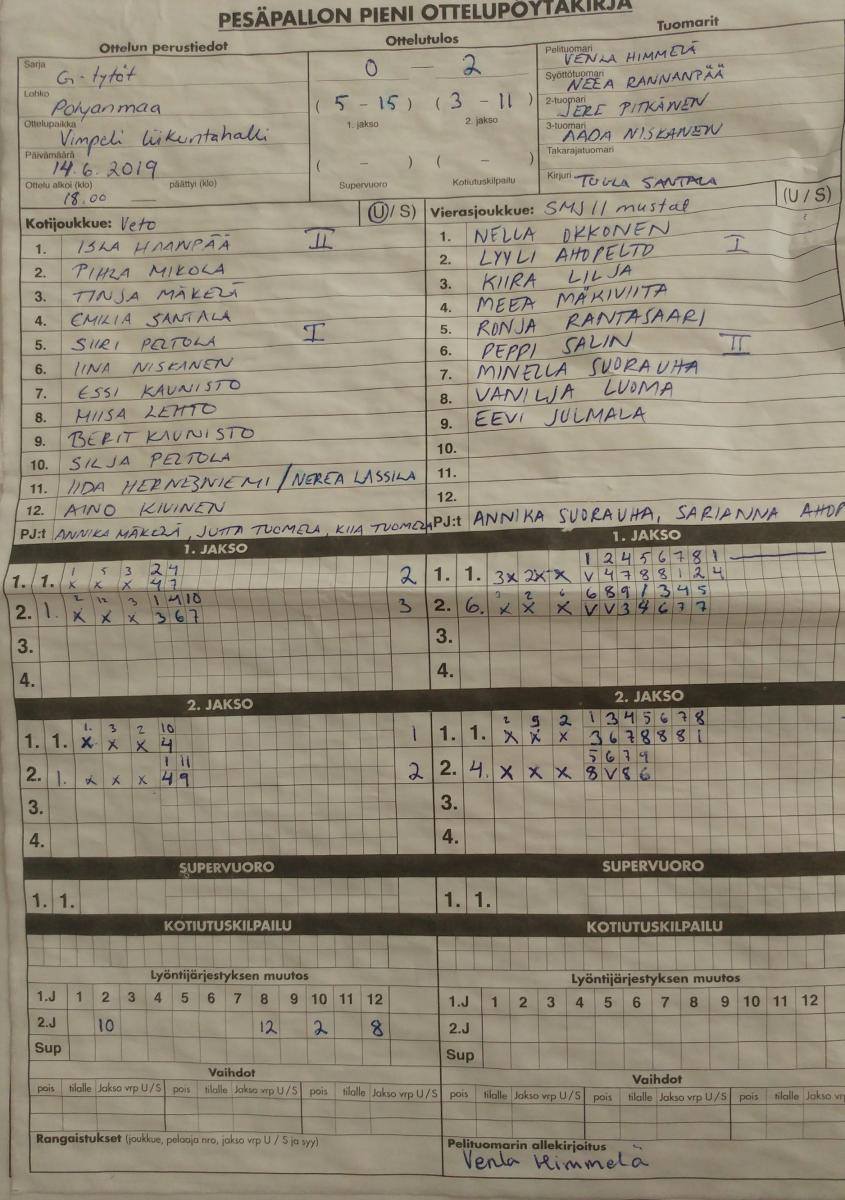 PESÄPALLON PIENI OTTELUPÖYTÄKIRJA
Ottelun perustiedot
Sarja
G-tytöt
Lohko
Pohjanmaa
Ottelupaikka
Vimpeli liikuntahalli
Päivämäärä
14.6.2019
Ottelu alkoi (klo) päättyi (klo)
18.00 —
Ottelutulos
0 — 2
(5 - 15) (3 - 11)
1. jakso 2. jakso
( - ) ( - )
Supervuoro Kotiutuskilpailu
Tuomarit
Pelituomari
VENLA HIMMELÄ
Syöttötuomari
NEEA RANNANPÄÄ
2-tuomari
JERE PITKÄNEN
3-tuomari
AADA NISKANEN
Takarajatuomari
Kirjuri TUULA SANTALA
Kotijoukkue: Veto (U/S)
1. ISLA HAANPÄÄ II
2. PIHLA MIKOLA
3. TINJA MÄKELÄ
4. EMILIA SANTALA
5. SIIRI PELTOLA I
6. IINA NISKANEN
7. ESSI KAUNISTO
8. MIISA LEHTO
9. BERIT KAUNISTO
10. SILJA PELTOLA
11. IIDA HERNESNIEMI / NEREA LASSILA
12. AINO KIVINEN
PJ:t ANNIKA MÄKELÄ, JUTTA TUOMELA, KIIA TUOMELA
Vierasjoukkue: SMJ II mustat (U/S)
1. NELLA OKKONEN
2. LYYLI AHOPELTO I
3. KIIRA LILJA
4. MEEA MÄKIVIITA
5. RONJA RANTASAARI
6. PEPPI SALIN II
7. MINELLA SUORAUHA
8. VANILJA LUOMA
9. EEVI JULMALA
10.
11.
12.
PJ:t ANNIKA SUORAUHA, SARIANNA AHOP
1. JAKSO
1 5 3 2 4
1. 1. x x x 4 7 2
2 12 3 1 4 10
2. 1. x x x 3 6 7 3
3.
4.
1. JAKSO
1 2 4 5 6 7 8 1
1. 1. 3x 2x x V 4 7 8 8 1 2 4
6 8 9 1 3 4 5
2. 6. x x x V V 3 4 6 7 7
3.
4.
2. JAKSO
1. 3 2 10
1. 1. x x x 4 1
1 11
2. 1. x x x 4 9 2
3.
4.
2. JAKSO
2 9 2 1 3 4 5 6 7 8
1. 1. x x x 3 6 7 8 8 8 1
5 6 7 9
2. 4. x x x 8 V 8 6
3.
4.
SUPERVUORO
1. 1.
SUPERVUORO
1. 1.
KOTIUTUSKILPAILU
KOTIUTUSKILPAILU
Lyöntijärjestyksen muutos
1.J 1 2 3 4 5 6 7 8 9 10 11 12
2.J 10 12 2 8
Sup
Lyöntijärjestyksen muutos
1.J 1 2 3 4 5 6 7 8 9 10 11 12
2.J
Sup
Vaihdot
pois tilalle Jakso vrp U/S pois tilalle Jakso vrp U/S pois tilalle Jakso vrp U/S
Vaihdot
pois tilalle Jakso vrp U/S pois tilalle Jakso vrp U/S pois tilalle Jakso vr
Rangaistukset (joukkue, pelaaja nro, jakso vrp U / S ja syy)
Pelituomarin allekirjoitus
Venla Himmelä